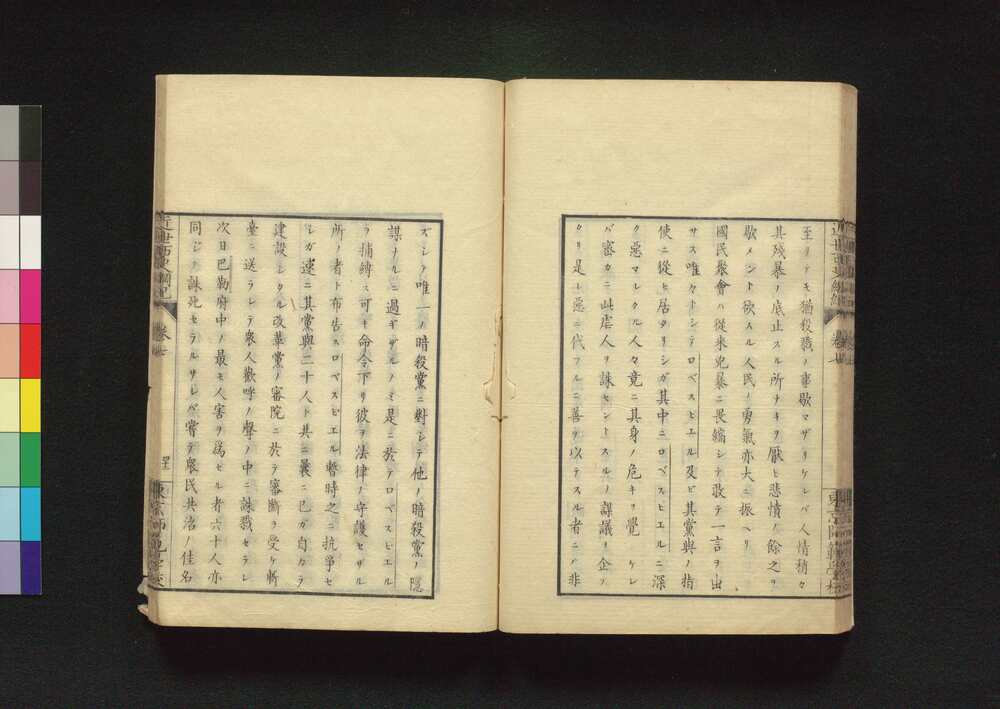 至リテモ猶殺戮ノ事歇マザリケレバ人情稍々
其残暴ノ底止スル所ナキヲ厭ヒ悲憤ノ餘之ヲ
歇メント欲スル人民ノ勇氣亦大ニ振ヘリ
國民聚會ハ従来兇暴ニ畏縮シテ敢テ一言ヲ出
サス唯々トシテロベスピエル及ビ其黨與ノ指
使ニ從ヒ居タリシガ其中ニロベスピエルニ深
ク惡マレタル人々竟ニ其身ノ危キヲ覺リケレ
バ審カニ此虐人ヲ誅セントスルノ謀議ヲ企ツ
タリ是レ惡ニ代フルニ善ヲ以テスル者ニハ非
ズシテ唯一ノ暗殺黨ニ對シテ他ノ暗殺黨ノ隠
謀ナルニ過ギザルノミ是ニ於テロベスピエル
ヲ捕縛ス可キ命令下リ彼ヲ法律ノ守護セザル
所ノ者ト布告スロベスピエル暫時之ニ抗爭セ
シガ速ニ其黨與二十人ト共ニ曩ニ己ガ自カラ
建設シタル改革黨ノ審院ニ於テ審斷ヲ受ケ斬
臺ニ送ラレテ衆人歡呼ノ聲ノ中ニ誅戮セラレ
次日巴勒府中ノ最モ人害ヲ爲セル者六十人亦
同ジク誅死セラルサレバ嘗テ衆民共治ノ佳名
近世西史綱紀
卷七